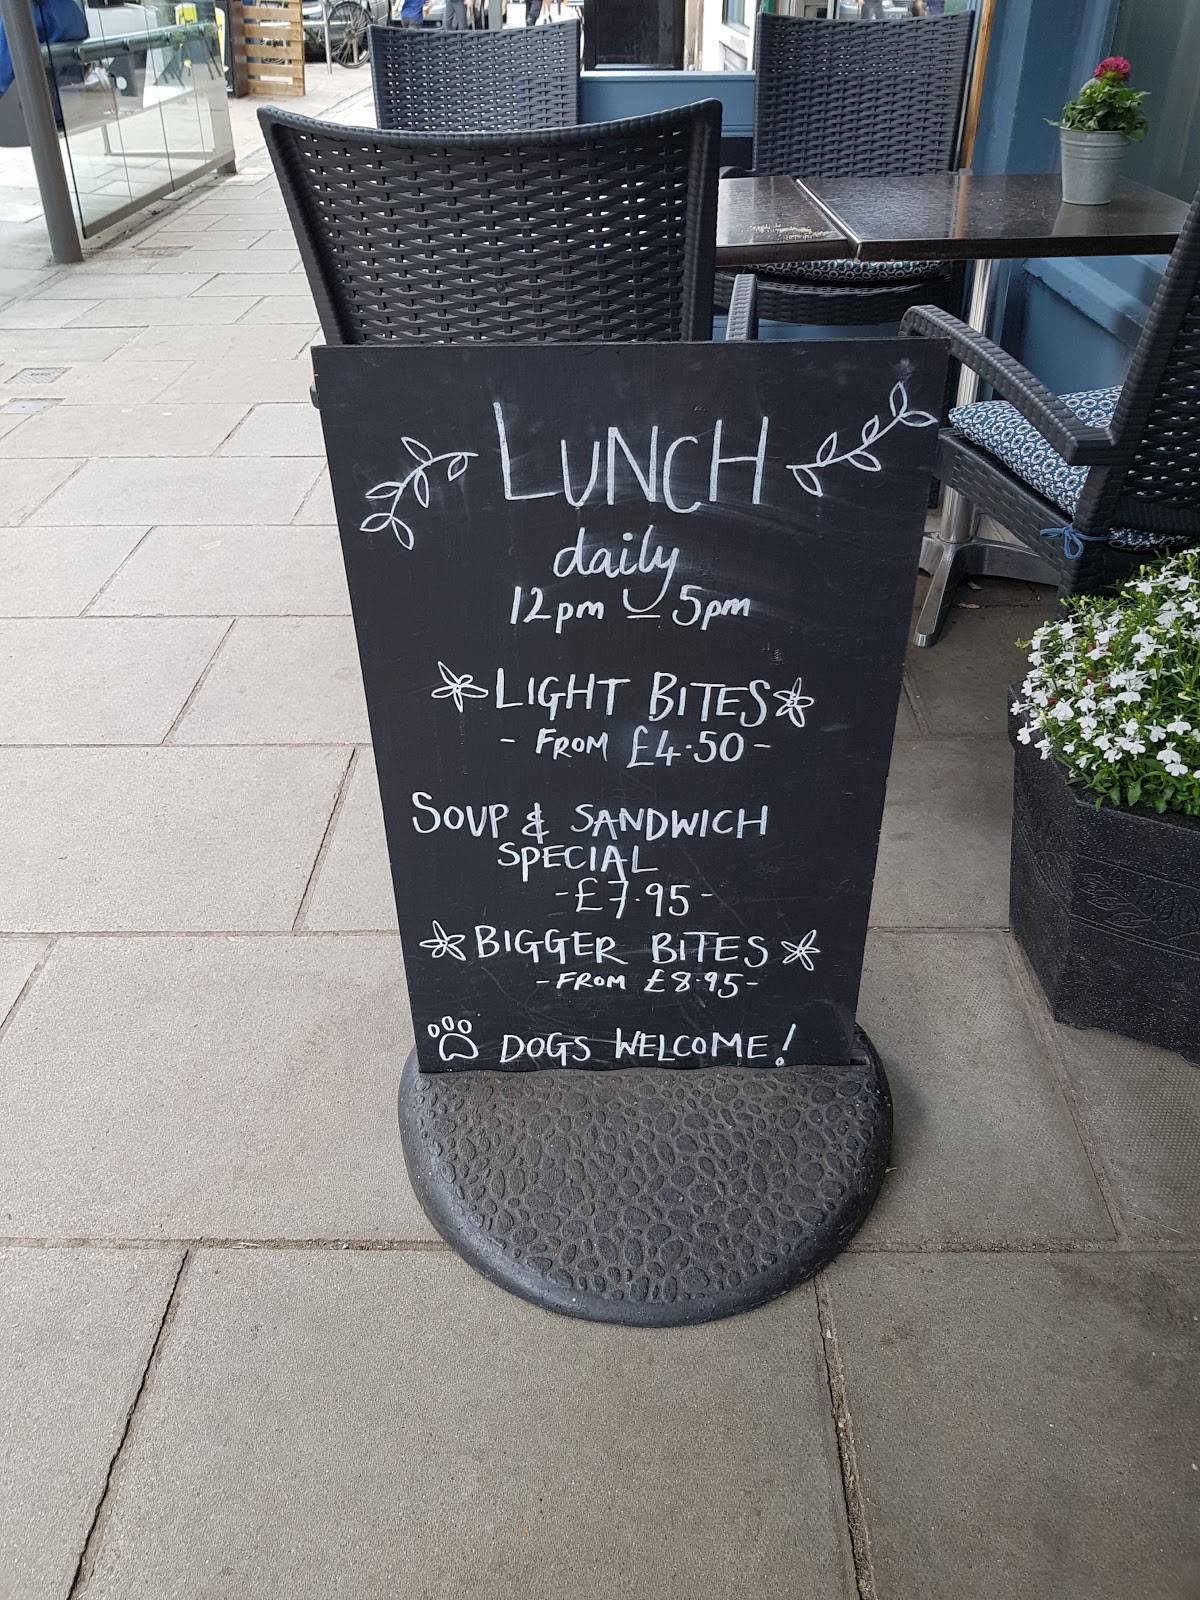 LUNCH
daily
12pm - 5pm
LIGHT BITES
- FROM £4.50 -
SOUP & SANDWICH
SPECIAL
- £7.95 -
BIGGER BITES
- FROM £8.95 -
DOGS WELCOME!